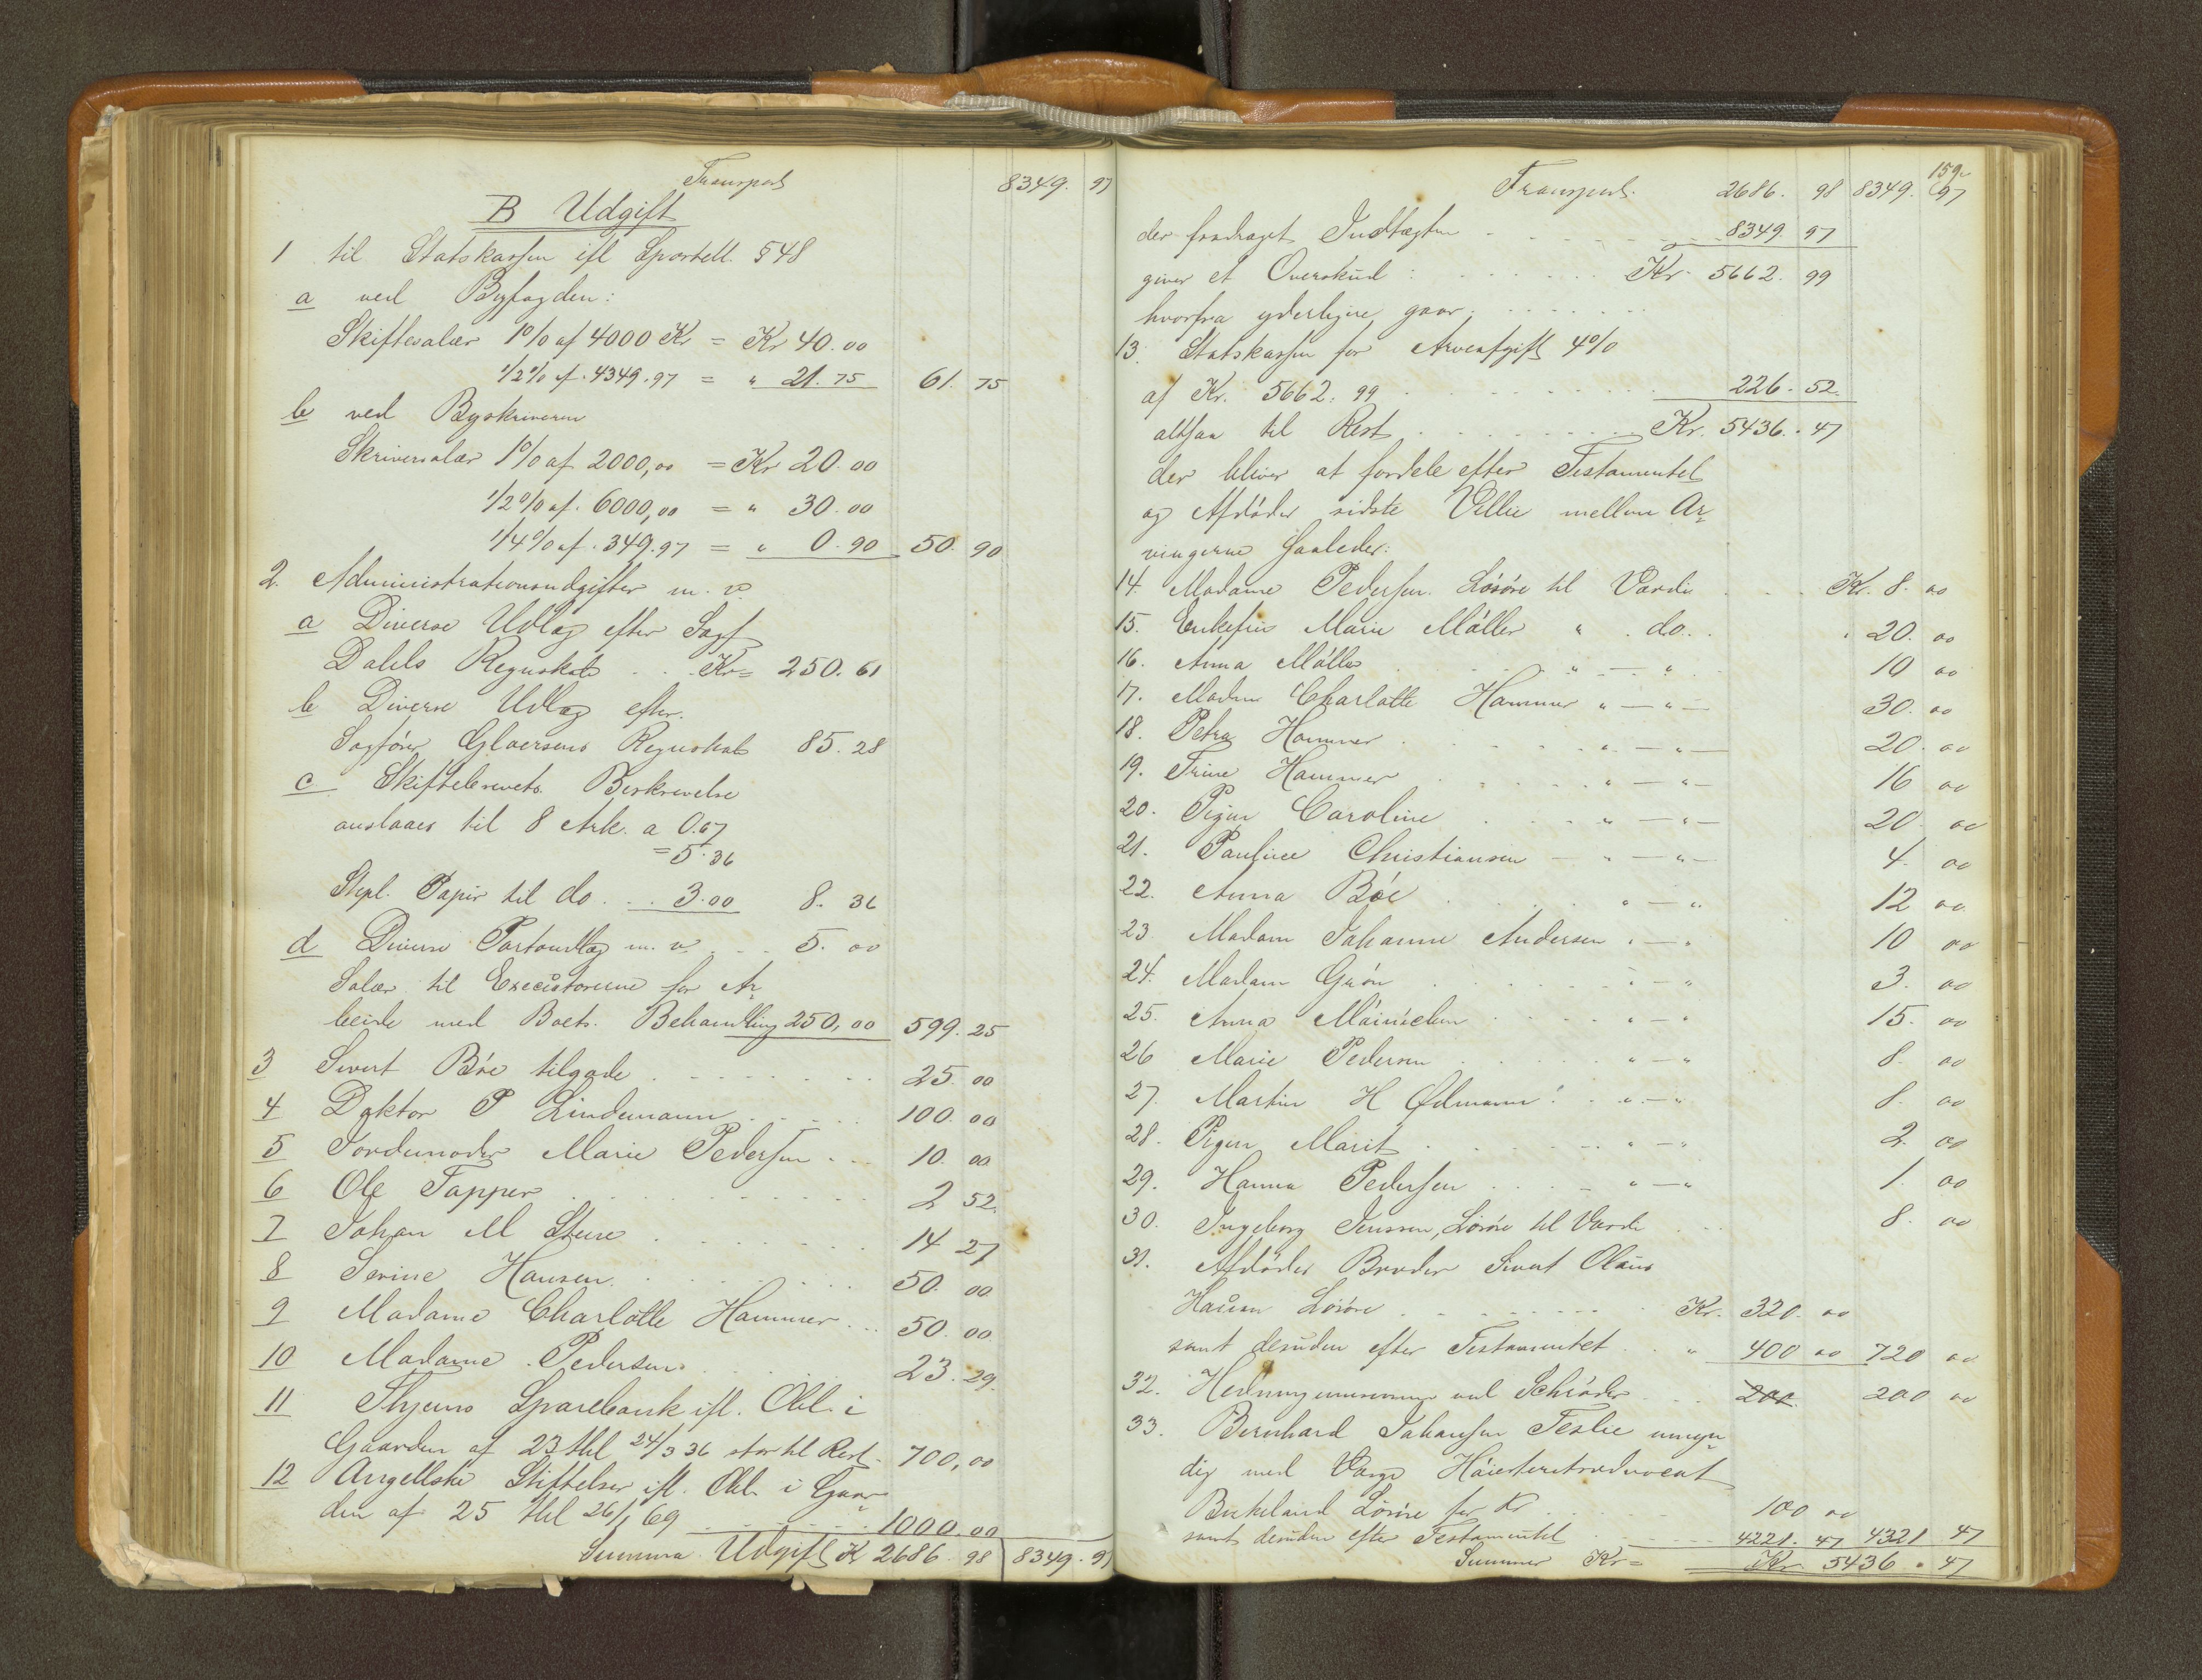 Transport 8349. 97
B Udgift
1 til Statskassen ifl Sportell. § 48
a ved Byfogden:
Skiftesalær 1% af 4000 Kr = Kr 40.00
1/2% af. 4349.97 = " 21.75 61.75
b ved Byskriveren
Skriversalær 1% af 2000,00 = Kr 20.00
1/2% af. 6000,00 = " 30.00
1/4% af. 349.97 = " 0.90 50.90
2. Administrationsudgifter m.v.
a Diverse Udlæg efter Sagf
Dahls Regnskab . . Kr = 250.61
b Diverse Udlæg efter
Sagfører Gløersens Regnskab 85.28
c Skiftebrevets Beskrivelse
anslaaes til 8 Ark. a 0.67
= 5.36
Stpl. Papir til do . . . 3.00 8.36
d Diverse Portoudlæg m.v. . . 5.00
Salær til Executorerne for Ar
beide med Boets Behandling 250,00 599.25
3 Sivert Bøe tilgode . . . 25.00
4 Doktor P Lindemann . . . 100.00
5 Jordemoder Marie Pedersen . . . 10.00
6 Ole Tapper . . . 2 52.
7 Johan M Sture . . . 14 27
8 Serine Hansen . . . 50.00
9 Madame Charlotte Hammer . . . 50.00
10 Madame Pedersen . . . 23.29.
11 Thjems Sparebank ifl. Obl. i
Gaarden af 23 thl 24/3 36 stor til Rest. 700,00
12 Angellske Stiftelser ifl. Obl. i Gaar
den af 25 thl 26/1 69 . . . 1000.00
Summa Udgift K 2686.98 8349.97
159
Transport. 2686.98 8349.97
der fradraget Indtægten - - - 8349.97
giver et Overskud : . . . Kr. 5662.99
hvorfra yderligere gaar: . . .
13. Statskassen for Arveafgift 4%
af Kr. 5662.99 . . . 226.52.
altsaa til Rest . . . Kr. 5436.47
der bliver at fordele efter Testamentet
og Afdødes sidste Villie mellem Ar
vingerne saaledes:
14. Madame Pedersen Løsøre til Værdi . . . Kr. 8.00
15. Enkefru Marie Møller " . do. . " 20.00
16. Anna Møller . . . " — " 10 00
17. Madm Charlotte Hammer " — " — 30.00
18. Petra Hammer . . . " — " — 20.00
19. Trine Hammer . . . " — " — 16 00
20. Pigen Caroline . . . " — " — 20 00
21. Pauline Christiansen — " — " — 4.00
22. Anna Bøe . . . " — " 12 00
23 Madam Johanne Andersen " — " 10 00
24. Madam Grøn . . . " — " 3.00
25. Anna . . . " — " 15.00
26 Marie Pedersen . . . " — " 8.00
27. Martin H Ødmann . . " — " 8.00
28. Pigen Marit . . . " — " 2.00
29. Hanna Pedersen . . . " — " 1.00
30. Ingeborg Jenssen, Løsøre til Værdi . . . 8.00
31. Afdødes Broder Sivert Olaus
Hansen Løsøre . . . Kr. 320.00
samt desuden efter Testamentet . . " 400 00 720 00
32. ved Schrøder . . . 200 200 00
33. Bernhard Johansen Teslie umyn
dig med Værge Høiesteretsadvocat
Birkeland Løsøre for Kr . . . 100 00
samt desuden efter Testamentet . . . 4221.47 4321 47
Summer Kr = Kr 5436.47